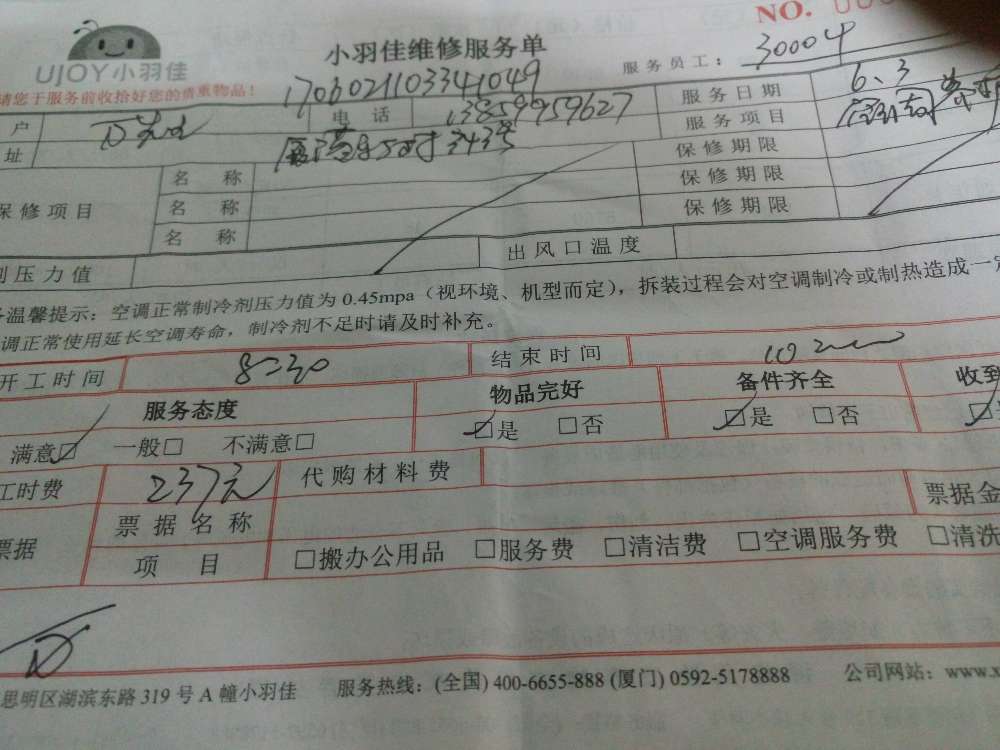 NO. 00
UJOY小羽佳
小羽佳维修服务单
服务员工：30004
请您于服务前收拾好您的贵重物品！
1706021103341049
户
电 话
13859959627
服务日期
6、3
址
343号
服务项目
名 称
保修期限
保修项目
名 称
保修期限
名 称
保修期限
剂压力值
出风口温度
温馨提示：空调正常制冷剂压力值为 0.45mpa（视环境、机型而定），拆装过程会对空调制冷或制热造成一定
调正常使用延长空调寿命，制冷剂不足时请及时补充。
开工时间
8:30
结束时间
服务态度
物品完好
备件齐全
收到
满意☑ 一般□ 不满意□
☑是 □否
☑是 □否
工时费
237元
代购材料费
票据
票据名称
票据金
项 目
□搬办公用品 □服务费 □清洁费 □空调服务费 □清洗
思明区湖滨东路 319 号 A 幢小羽佳 服务热线：(全国) 400-6655-888 (厦门) 0592-5178888 公司网站：www.x